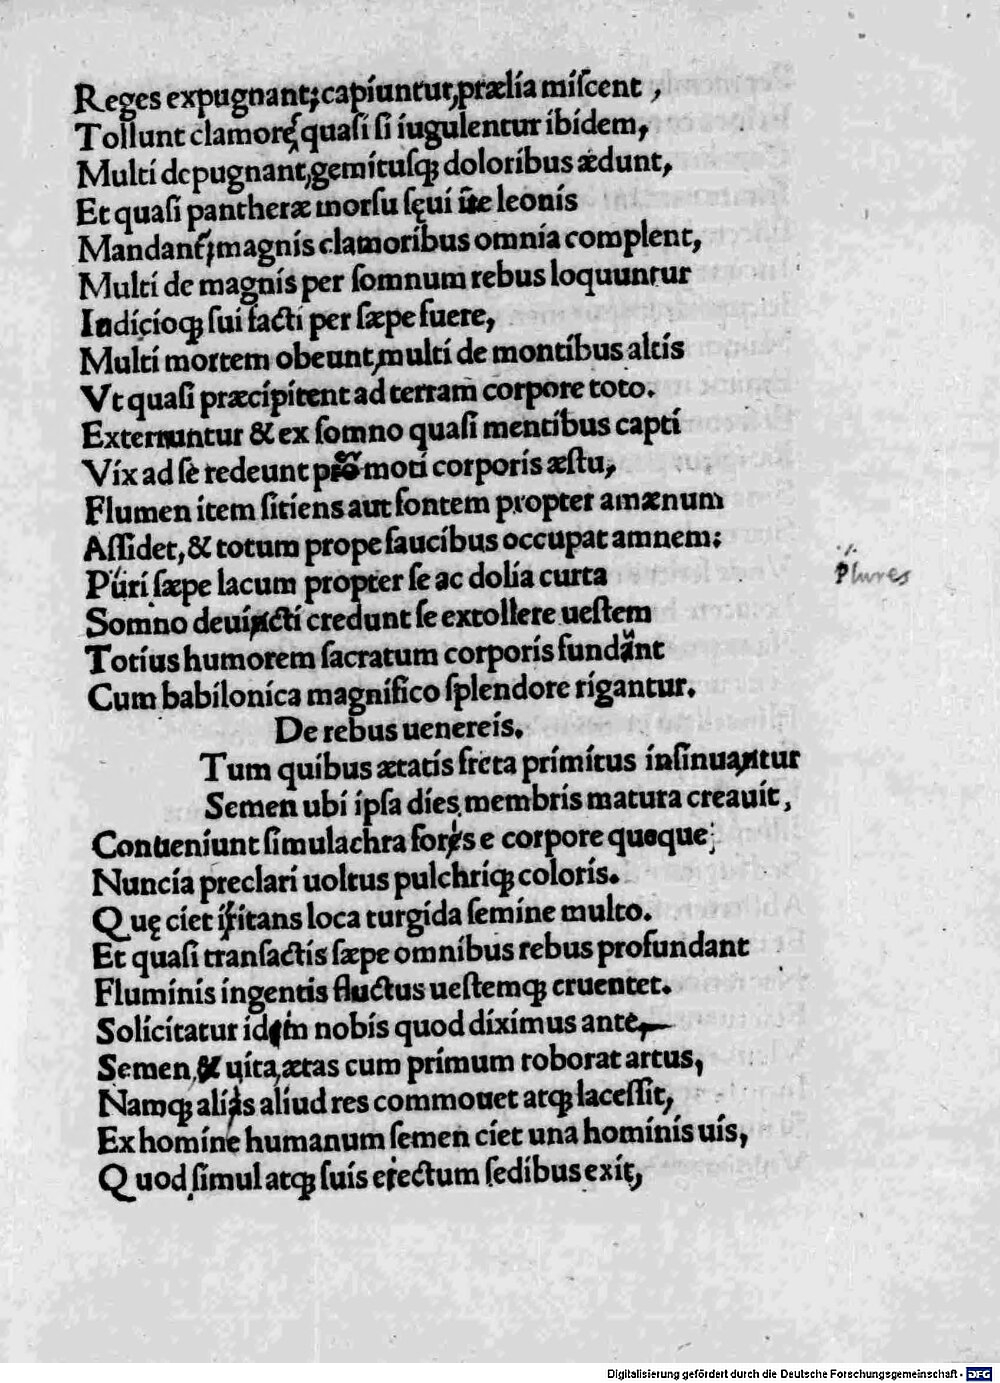 Reges expugnant, capiuntur, prælia miſcent,
Tollunt clamorē quaſi ſi iugulentur ibidem,
Multi depugnant, gemitusꝗ doloribus ædunt,
Et quaſi pantheræ morſu ſęui ue leonis
Mandant᷑ magnis clamoribus omnia complent,
Multi de magnis per ſomnum rebus loquuntur
Indicioꝗ ſui facti per ſæpe fuere,
Multi mortem obeunt, multi de montibus altis
Vt quaſi præcipitent ad terram corpore toto.
Externuntur & ex ſomno quaſi mentibus capti
Vix ad ſe redeunt moti corporis æſtu,
Flumen item ſitiens aut fontem propter amænum
Aſſidet, & totum prope faucibus occupat amnem:
Puri ſæpe lacum propter ſe ac dolia curta
Plures
Somno deuincti credunt ſe extollere ueſtem
Totius humorem ſacratum corporis fundunt
Cum babilonica magnifico ſplendore rigantur.
De rebus uenereis.
Tum quibus ætatis freta primitus inſinuantur
Semen ubi ipſa dies membris matura creauit,
Conueniunt ſimulachra foris e corpore quoque
Nuncia preclari uoltus pulchriꝗ coloris.
Quę ciet irritans loca turgida ſemine multo.
Et quaſi tranſactis ſæpe omnibus rebus profundant
Fluminis ingentis fluctus ueſtemꝗ cruentet.
Solicitatur id in nobis quod diximus ante,
Semen, & uita, ætas cum primum roborat artus,
Namꝗ alias aliud res commouet atꝗ laceſſit,
Ex homine humanum ſemen ciet una hominis uis,
Quod ſimul atꝗ ſuis eiectum ſedibus exit,
Digitalisierung gefördert durch die Deutsche Forschungsgemeinschaft - DFG